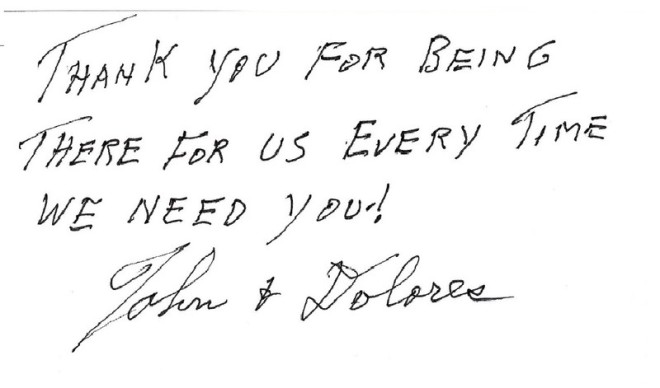 THANK YOU FOR BEING
THERE FOR US EVERY TIME
WE NEED YOU!
John & Dolores